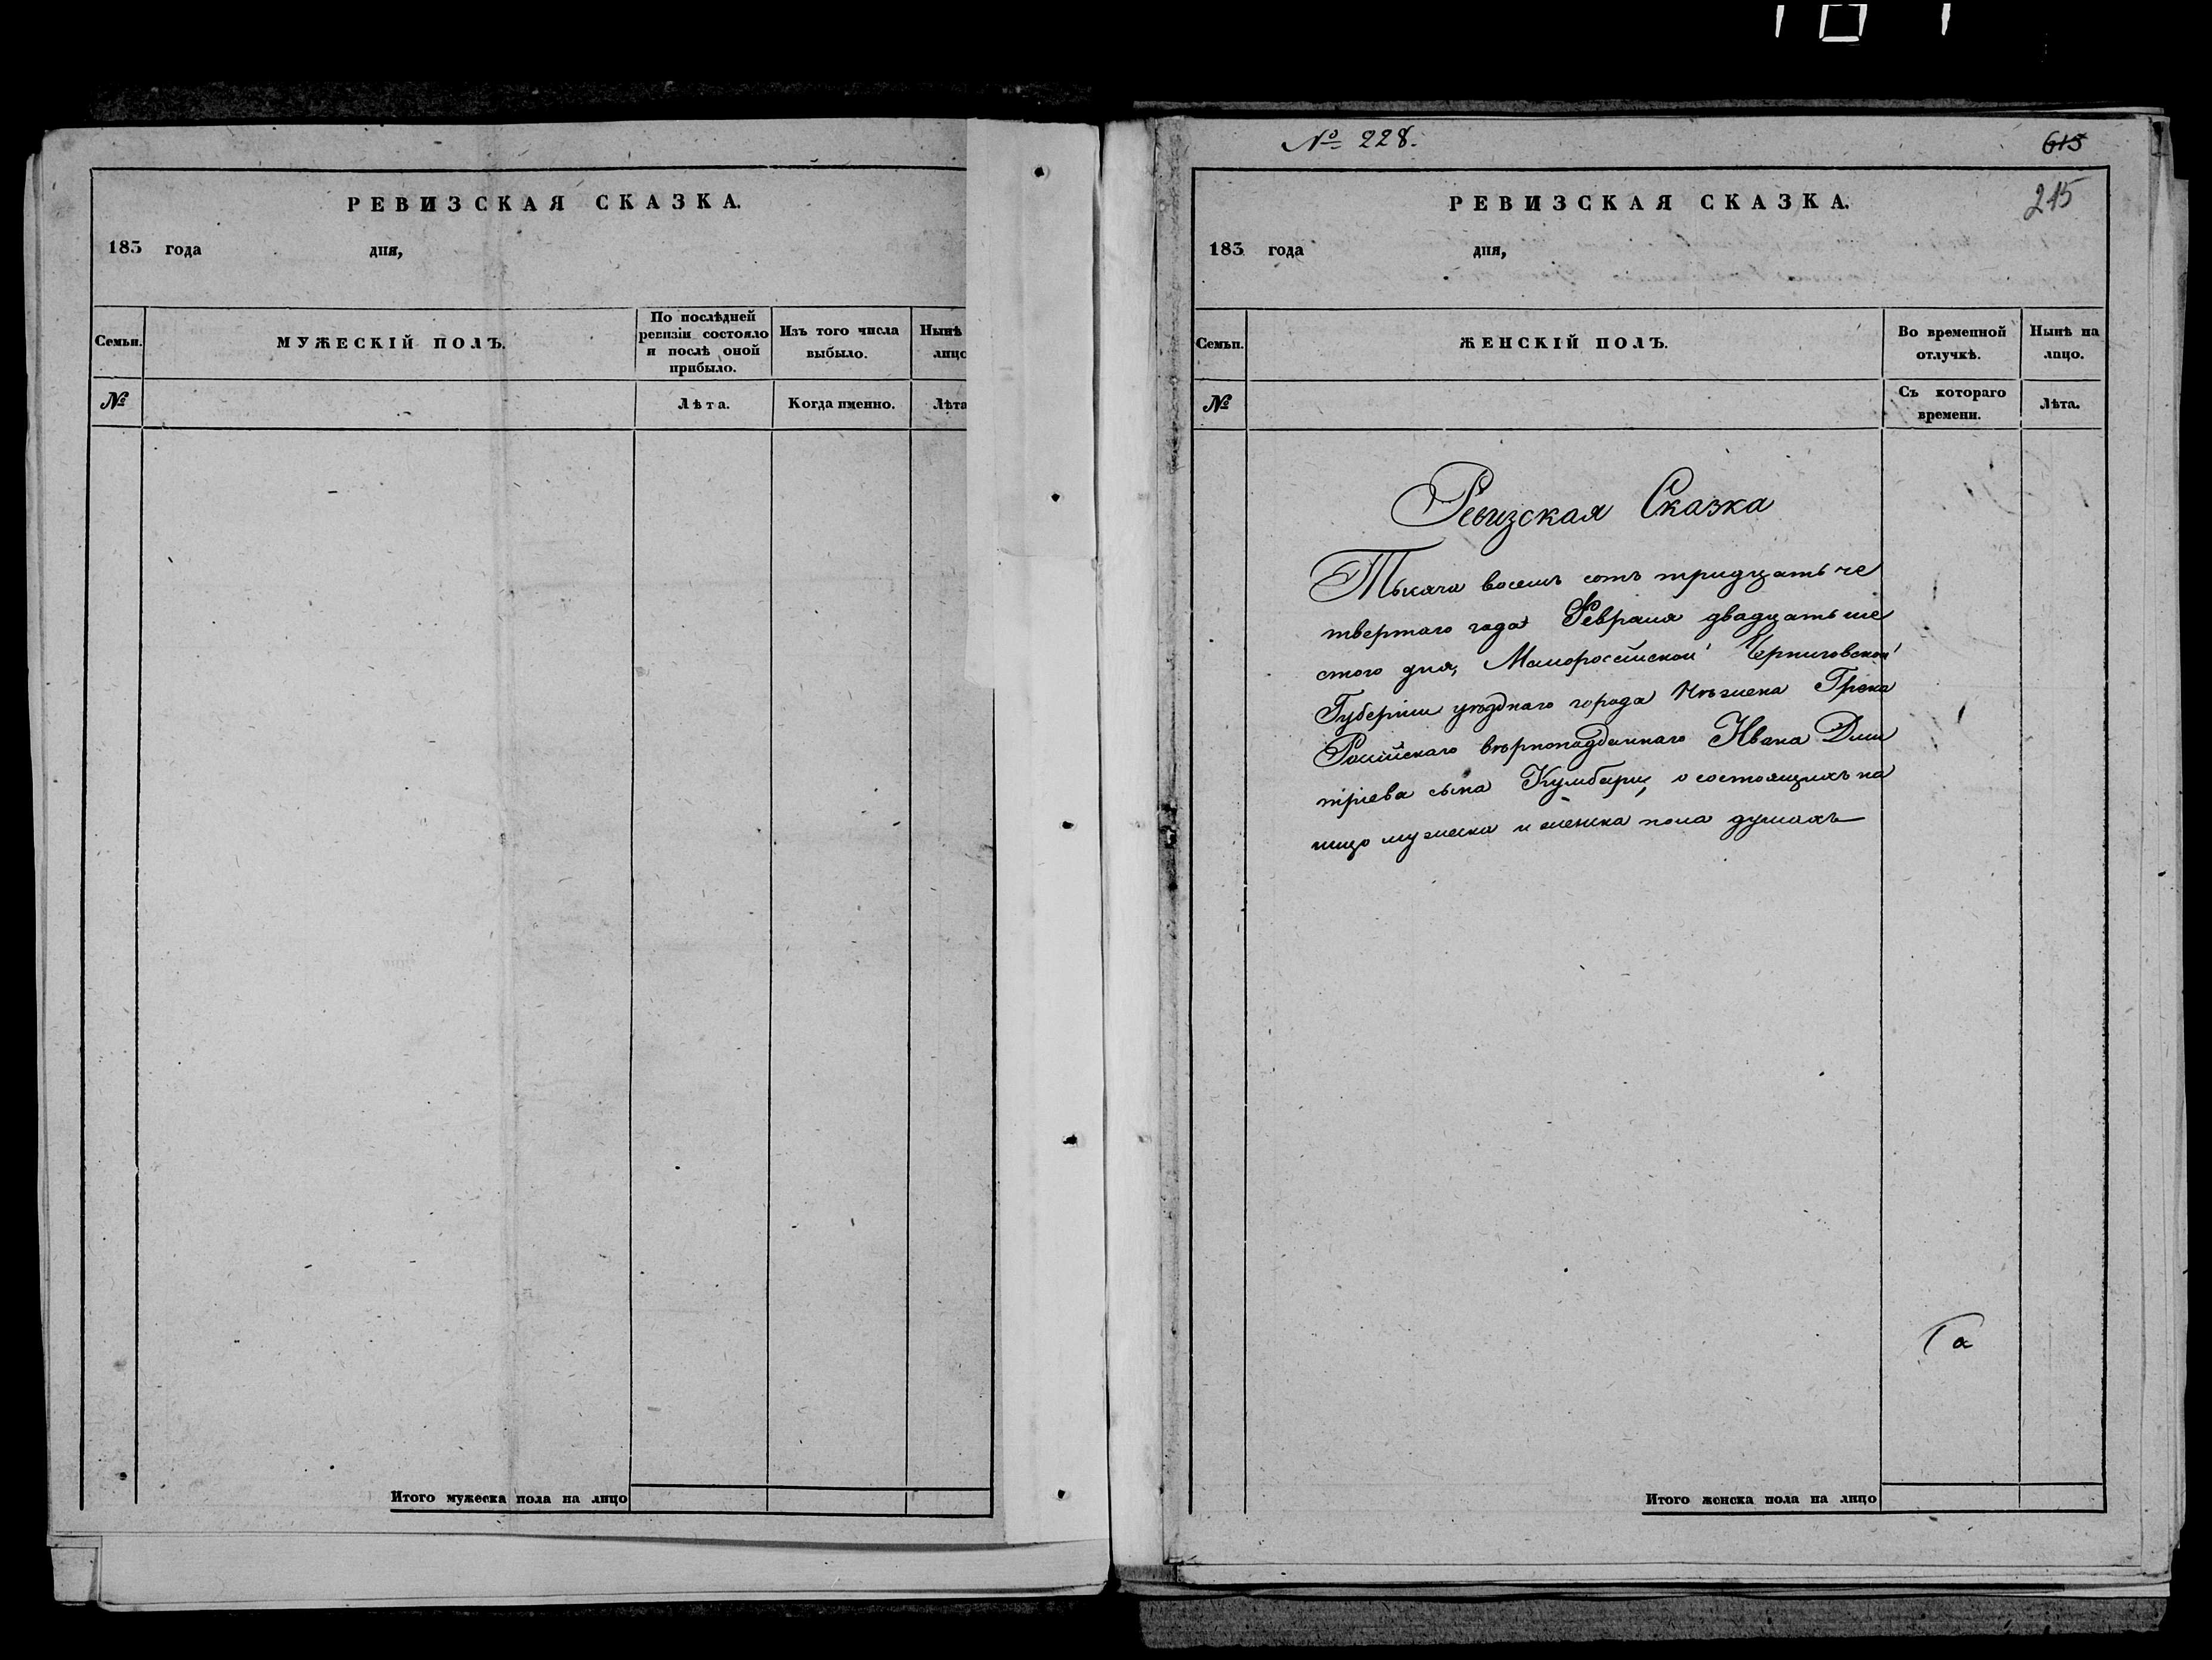 РЕВИЗСКАЯ СКАЗКА.
183 года дня,
Семьи.
МУЖЕСКІЙ ПОЛЪ.
По послѣдней
ревизіи состояло
и послѣ оной
прибыло.
Изъ того числа
выбыло.
Нынѣ
лицо
№
Лѣта.
Когда именно.
Лѣта
Итого мужеска пола на лицо
№ 228.
615
215
РЕВИЗСКАЯ СКАЗКА.
183 года дня,
Семьи.
ЖЕНСКІЙ ПОЛЪ.
Во временной
отлучкѣ.
Нынѣ на
лицо.
№
Съ котораго
времени.
Лѣта.
Ревизская Сказка
Тысяча восемь сотъ тридцать че
твертаго года Февраля двадцать ше
стого дня, Малоросcійской Черниговской
Губерніи уѣзднаго города Нѣжена Грека
Росiйскаго вѣрноподданнаго Ивана Дми
тріева сына Кумбари, о состоящихъ на
лицо мужеска и женска пола душахъ
Итого женска пола на лицо